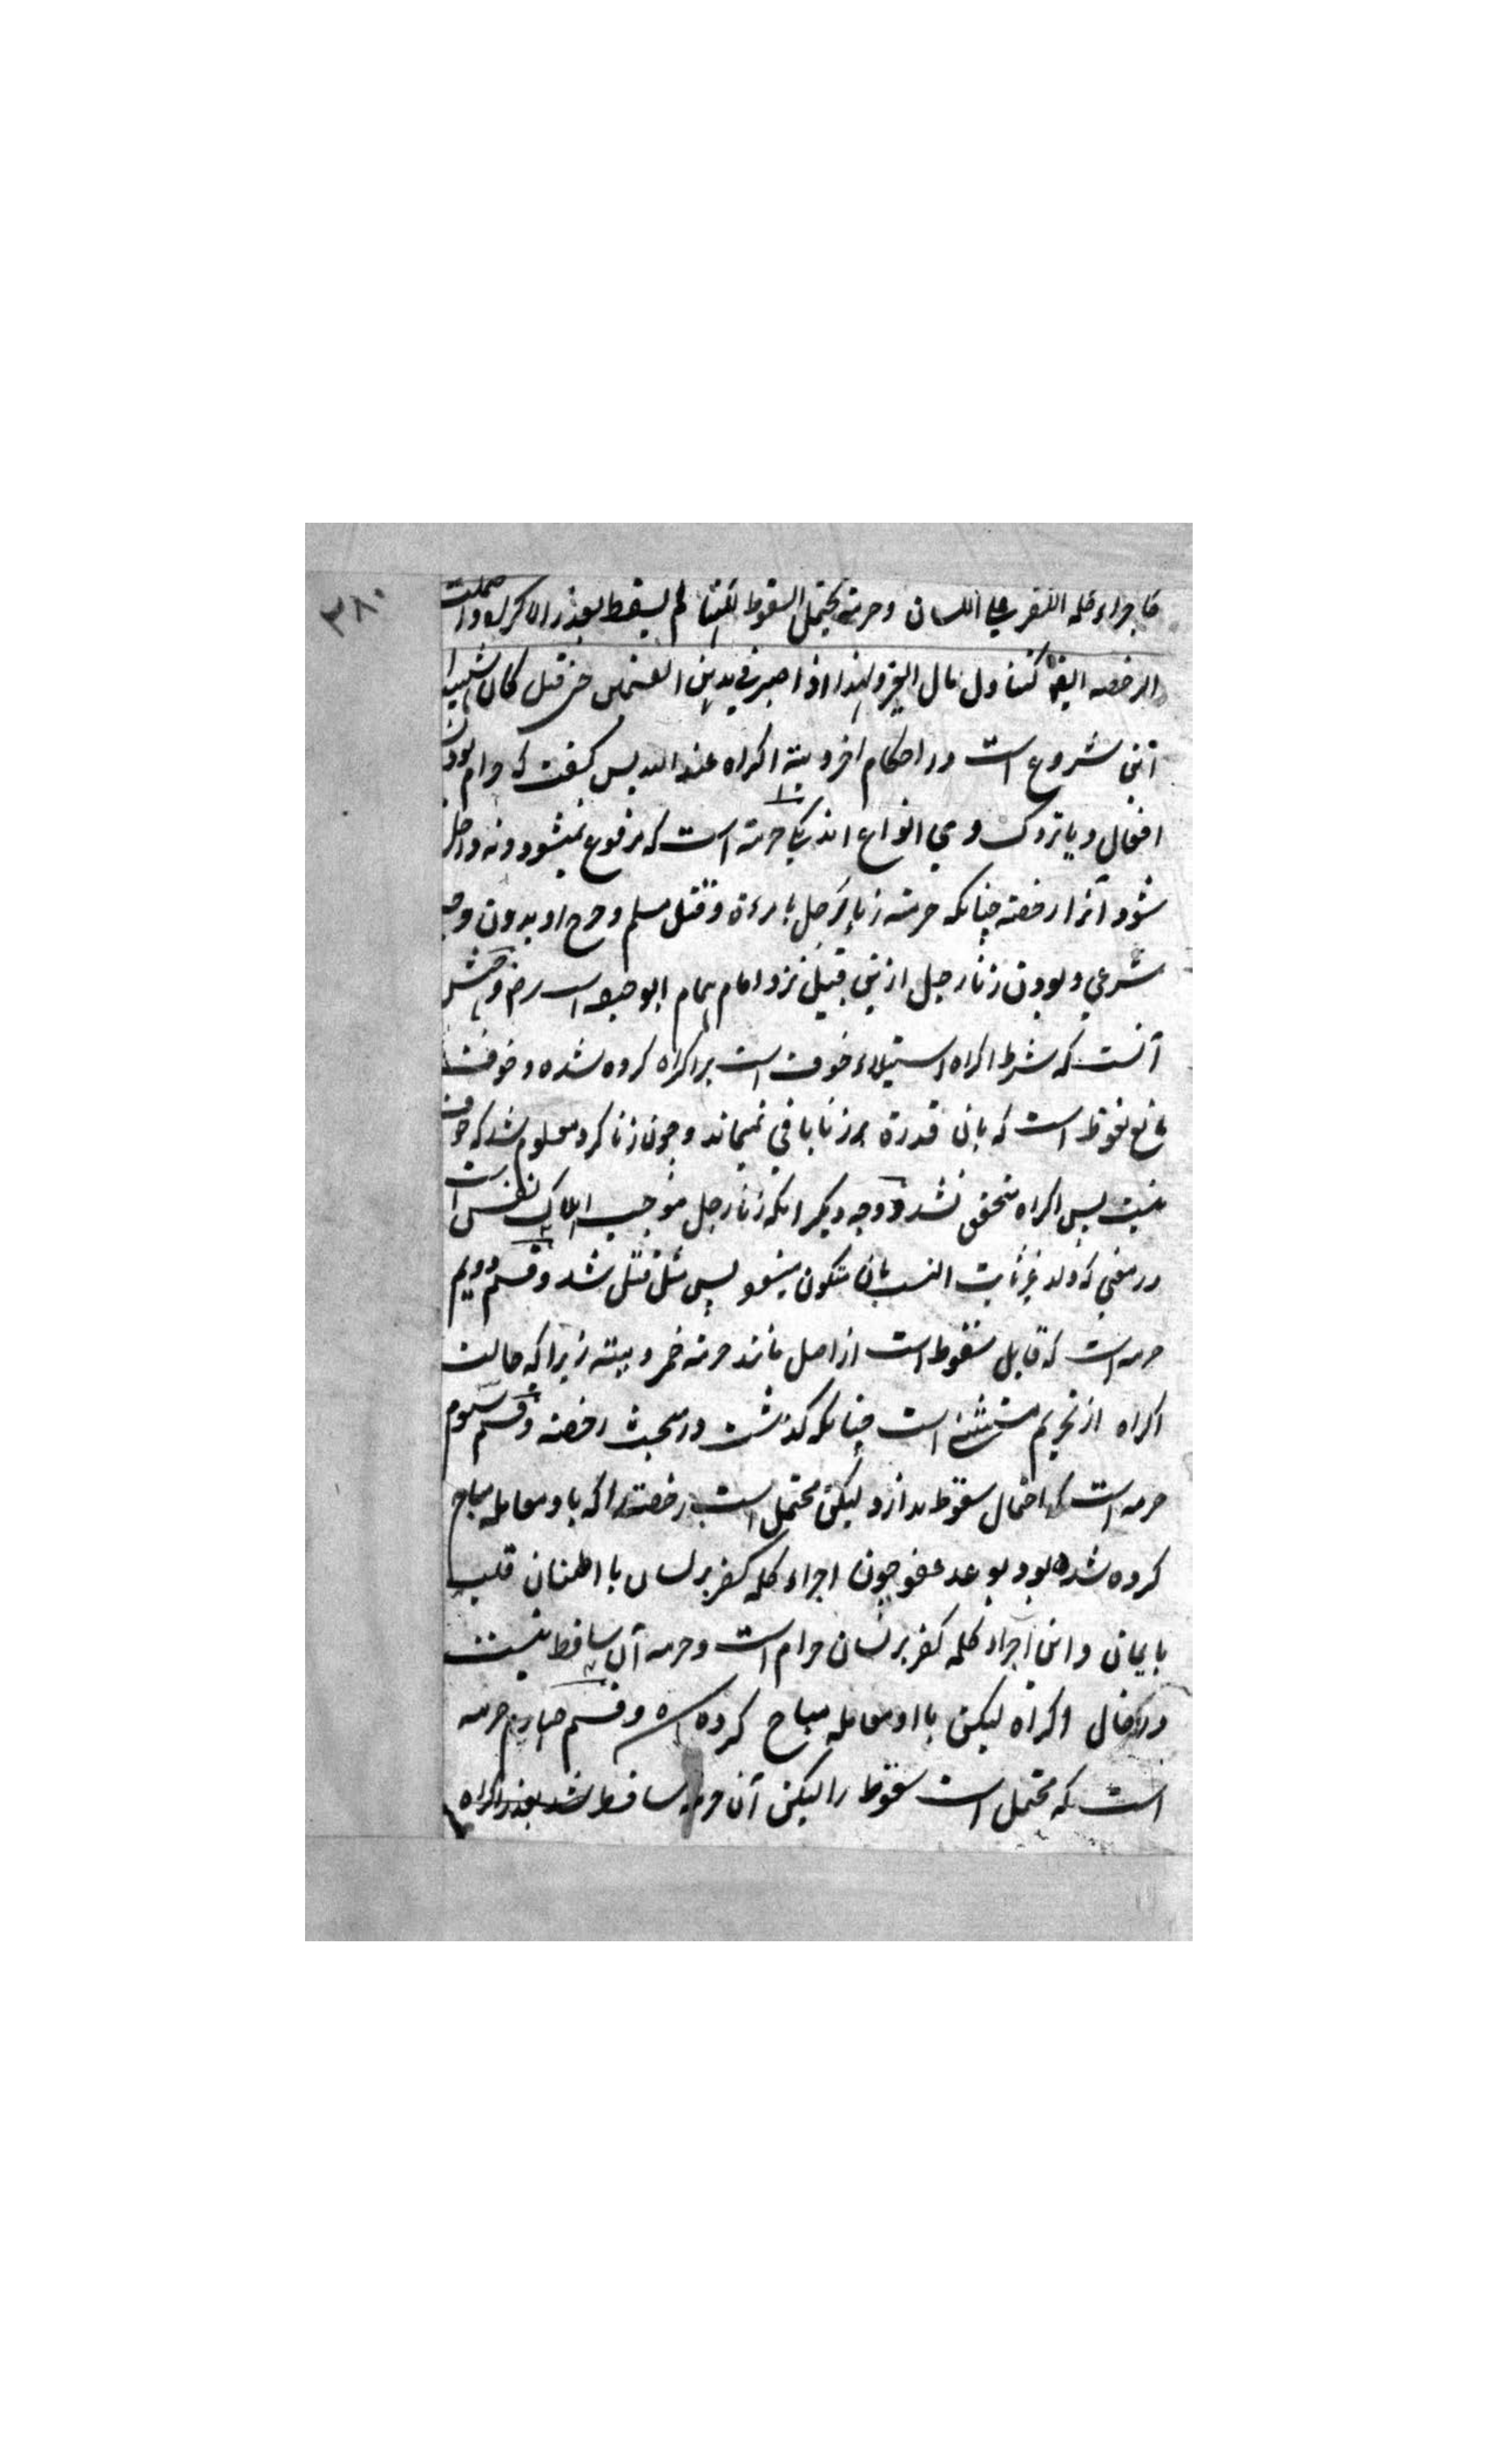 ۳۸۰
کاجراء کلمه الکفر علی اللسان وحرمة یحتمل السقوط لکنها لم یسقط بعذر الاکراه واحتملت
الرخصه ایضا کتناول مال الغیر ولهذا اذا صبر فی هذین القسمین حتی قتل کان شهیدا
اینی شروع است در احکام اخرویته اکراه عند الله پس گفت که حرام بودن
افعال ویا تروک وی انواع اند یکی حرمته است که مرفوع نمیشود ونه داخل
شود آنرا رخصته چنانکه حرمته زنا رجل بامرءة وقتل مسلم وجرح او بدون وجه
شرعی وبودن زنا رجل ازینی قبیل نزد امام همام ابو حنیفه است رض ووجهش
آنست که شرط اکراه استیلاء خوف است بر اکراه کرده شده وخوف
مانع نعوظ است که بان قدرة بر زنا باقی نمیماند وچون زنا کرد معلوم شد که خوف
نیست پس اکراه متحقق نشد ووجه دیگر انکه زنا رجل موجب اهلاک نفس است
در معنی که ولد غیر ثابت النسب بان متکون میشود پس مثل قتل شد وقسم دویم
حرمه است که قابل سقوط است از اصل مانند حرمته خمر ومیته زیرا که حالت
اکراه از تحریم مستثنی است چنانکه گذشت در مبحث رخصته وقسم سیوم
حرمه است که احتمال سقوط ندارد لیکن محتمل است رخصته را که با و معامله مباح
کرده شده بود بوعد عفو چون اجراء کلمه کفر بر لسان با اطمنان قلب
بایمان واین اجراء کلمه کفر بر لسان حرام است وحرمه آن ساقط نیست
در حال اکراه لیکن با او معامله مباح کرده وقسم چهارم حرمه
است که محتمل است سقوط را لیکن آن حرمه ساقط نشد بعذر اکراه